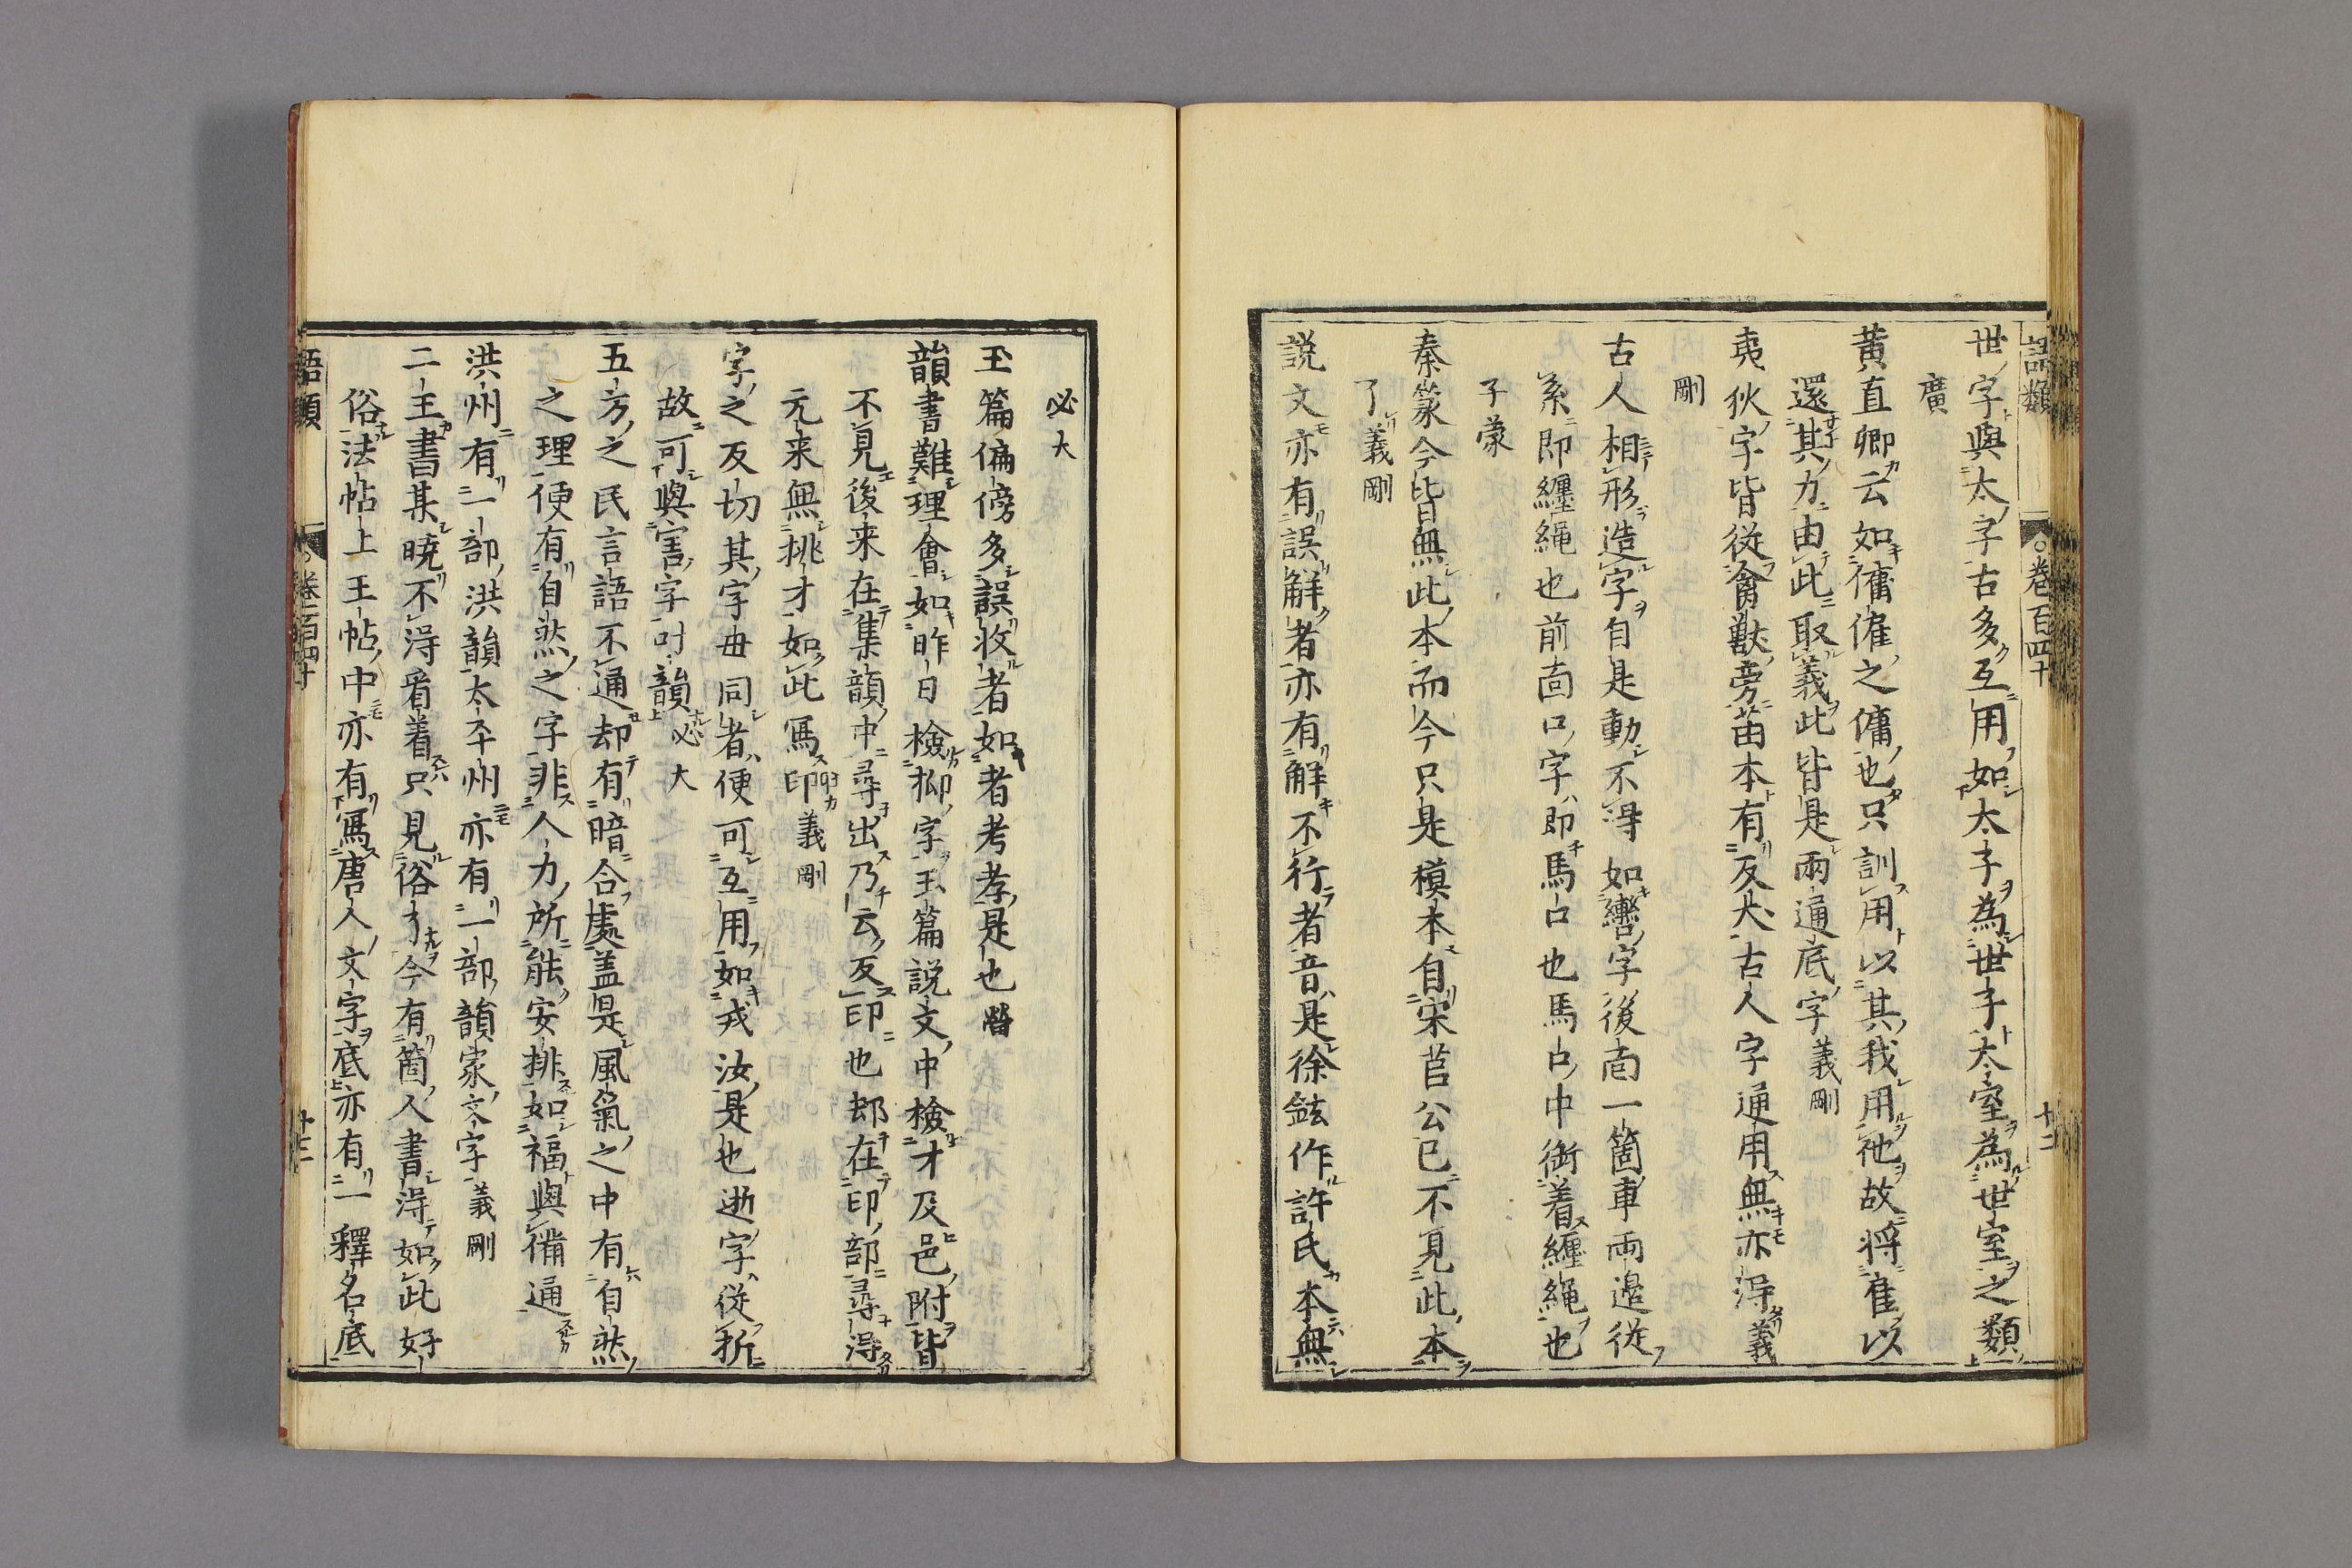 語類
卷百四十
十二
世字與太字古多互用如太子為世子太室為世室之類
廣
黃直卿云如傭雇之傭也只訓用以其我用他故將雇以
還其力由此取義此皆是兩通底字義剛
夷狄字皆從禽獸旁苗本有反犬古人字通用無亦得義
剛
古人相形造字自是動不得如轡字後面一箇車兩邊從
糸即纏繩也前面口字即馬口也馬口中銜着纏繩也
子蒙
秦篆今皆無此本而今只是模本自宋莒公已不見此本
了義剛
説文亦有誤解者亦有解不行者音是徐鉉作許氏本無
必大
玉篇偏傍多誤收者如者考孝是也
韻書難理會如昨日檢抑字玉篇説文中檢才及邑附皆
不見後来在集韻中尋出乃云反印也却在印部尋得
元来無挑才如此寫印義剛
字之反切其字毋同者便可互用如戎汝是也逝字從折
故可與害字叶韻必大
五方之民言語不通却有暗合處盖是風氣之中有自然
之理便有自然之字非人力所能安排如福與備通
洪州有一部洪韻太平州亦有一部韻家文字義剛
二王書某曉不得看着只見俗了今有箇人書得如此好
俗法帖上王帖中亦有寫唐人文字底亦有一釋名底
語類
卷百四十
十二